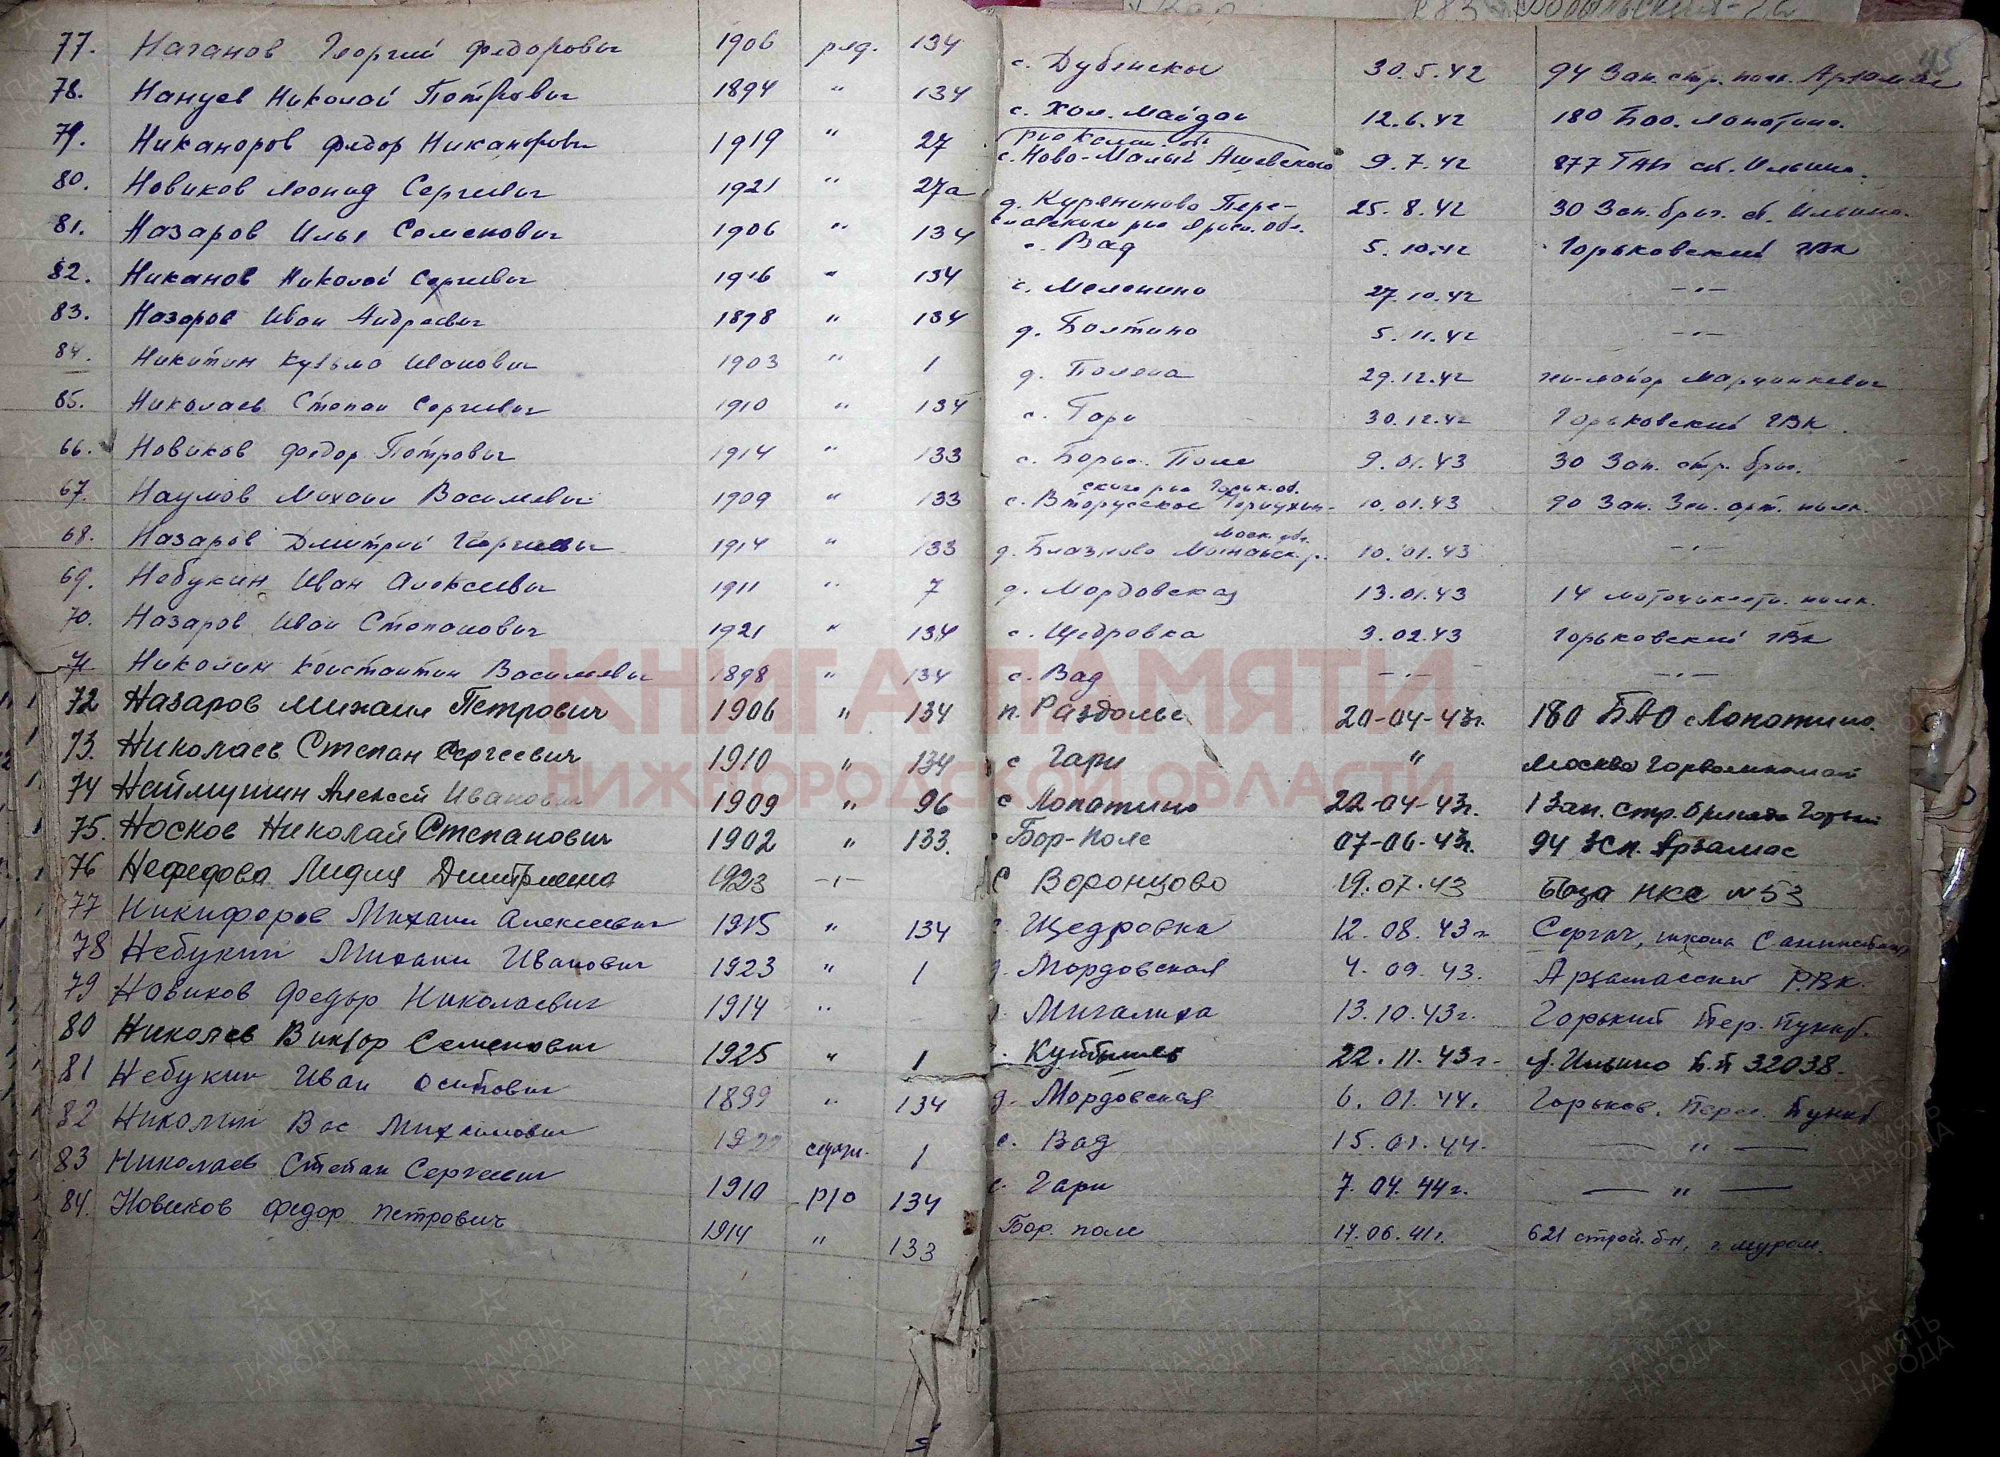 77. Наганов Георгий Федорович 1906 ряд. 134 с. Дубенское 30.5.42 94 Зап. стр. полк. Арзамас
78. Нануев Николай Петрович 1894 " 134 с. Хол. Майдан 12.6.42 180 Бао. Лопатино.
79. Никаноров Федор Никанорович 1919 " 27 с. Ново-Малый 9.7.42 877 ст. Ильино.
80. Новиков Леонид Сергеевич 1921 " 27а д. Курянинове Пере- 25.8.42 30 Зен. бриг. ст. Ильино.
славского р-на Яросл. обл.
81. Назаров Илья Семенович 1906 " 134 с. Вад 5.10.42 Горьковский ГВК
82. Никанов Николай Сергеевич 1916 " 134 с. Меленино 27.10.42 —"—
83. Назаров Иван Андреевич 1898 " 134 д. Болтино 5.11.42 —"—
84. Никитин Кузьма Иванович 1903 " 1 д. Поляна 29.12.42
85. Николаев Степан Сергеевич 1910 " 134 с. Гари 30.12.42 Горьковский ГВК
66. Новиков Федор Петрович 1914 " 133 с. Борис. Поле 9.01.43 30 Зап. стр. бриг.
ского р-на Горьк. об.
67. Наумов Михаил Васильевич 1909 " 133 с. Вторусское 10.01.43 90 Зап. Зен. арт. полк.
Моск. обл.
68. Назаров Дмитрий Георгиевич 1914 " 133 д. Блазново Можайск. р. 10.01.43 —"—
69. Небукин Иван Алексеевич 1911 " 7 д. Мордовская 13.01.43 14 мотоциклетн. полк.
70. Назаров Иван Степанович 1921 " 134 с. Щедровка 3.02.43 Горьковский ГВК
71 Николин Константин Васильевич 1898 " 134 с. Вад —"— —"—
72 Назаров Михаил Петрович 1906 " 134 п. Раздолье 20-04-43г. 180 БАО с Лопатино.
73. Николаев Степан Сергеевич 1910 " 134 с Гари " Москва
74 Наймушин Алексей Иванович 1909 " 96 с Лопатино 22-04-43г. 1 Зап. стр. бригада Горький
75. Носков Николай Степанович 1902 " 133. с Бор-Поле 07-06-43г. 94 Зсп. Арзамас
76 Нефедова Лидия Дмитриевна 1923 —"— С Воронцово 19.07.43 База НКС №53
77 Никифоров Михаил Алексеевич 1915 " 134 с. Щедровка 12.08.43г. Сергач, школа
78 Небукин Михаил Иванович 1923 " 1 д. Мордовская 4.09.43. Арзамасский РВК.
79 Новиков Федор Николаевич 1914 " с. Мигалиха 13.10.43г. Горький Пер. Пункт.
80 Николаев Виктор Семенович 1925 " 1 с. Куйбышев 22.11.43г. ст. Ильино В.Ч 32038.
81 Небукин Иван Осипович 1899 " 134 д. Мордовская 6.01.44. Горьков. Перес. Пункт
82 Николин Вас Михайлович серж. 1 с. Вад 15.01.44. —"—
83 Николаев Степан Сергеевич 1910 р/о 134 с. Гари 7.04.44г. —"—
84. Новиков Федор Петрович 1914 " 133 Бор. поле 17.06.41г. 621 строй. б-н, г. Муром.
КНИГА ПАМЯТИ
НИЖЕГОРОДСКОЙ ОБЛАСТИ